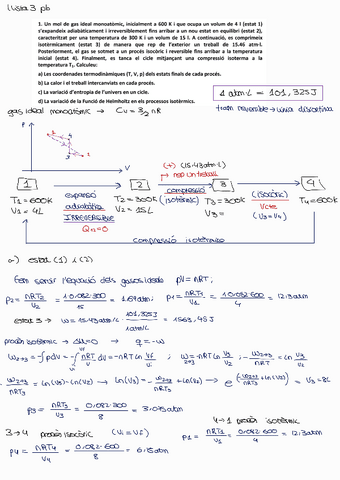 Llista 3 pb
1. Un mol de gas ideal monoatòmic, inicialment a 600 K i que ocupa un volum de 4 l (estat 1)
s'expandeix adiabàticament i irreversiblement fins arribar a un nou estat en equilibri (estat 2),
caracteritzat per una temperatura de 300 K i un volum de 15 l. A continuació, es comprimeix
isotèrmicament (estat 3) de manera que rep de l'exterior un treball de 15.46 atm·l.
Posteriorment, el gas se sotmet a un procés isocòric i reversible fins arribar a la temperatura
inicial (estat 4). Finalment, es tanca el cicle mitjançant una compressió isoterma a la
temperatura T₁. Calculeu:
a) Les coordenades termodinàmiques (T, V, p) dels estats finals de cada procés.
b) La calor i el treball intercanviats en cada procés.
c) La variació d'entropia de l'univers en un cicle.
d) La variació de la Funció de Helmholtz en els processos isotèrmics.
1 atm·L = 101,325J
gas ideal monoatòmic → Cv = 3/2 nR
tram reversible → línia discontinua
P
V
(+) (15.43 atm·L)
→ rep un treball
1 2 3 4
expansió adiabàtica IRREVERSIBLE Q12=0
compressió (isotèrmic)
(isocòric) Vcte (V3=V4)
T1=600K T2=300K T3=300K T4=600K
V1=4L V2=15L V3=
compressió isotèrmica
a) estat (1) i (2)
Fem servir l'equació dels gasos ideals pV=nRT;
P2= nRT2/V2 = 1·0,082·300/15 = 1,64 atm; P1= nRT1/V1 = 1·0,082·600/4 = 12,3 atm
estat 3 → W=15.43 atm·L · 101,325J/1atm·L = 1563,45 J
procés isotèrmic → ΔU=0 → q=-W
W2→3 = -∫pdV = -∫ nRT/V dV = -nRT ln Vf/Vi ; W2→3 = -nRT ln V3/V2 ; -W2→3/nRT = ln V3/V2
-W2→3/nRT3 = ln(V3)-ln(V2) → ln(V3) = -W2→3/nRT3 + ln(V2) → e^(-W2→3/nRT3 + ln(V2)) = V3 = 8L
P3 = nRT3/V3 = 0,082·300/8 = 3,075 atm
3→4 procés isocòric (Vi=Vf)
4→1 procés isotèrmic
P4 = nRT4/V4 = 0,082·600/8 = 6,15 atm
P1 = nRT1/V1 = 0,082·600/4 = 12,3 atm